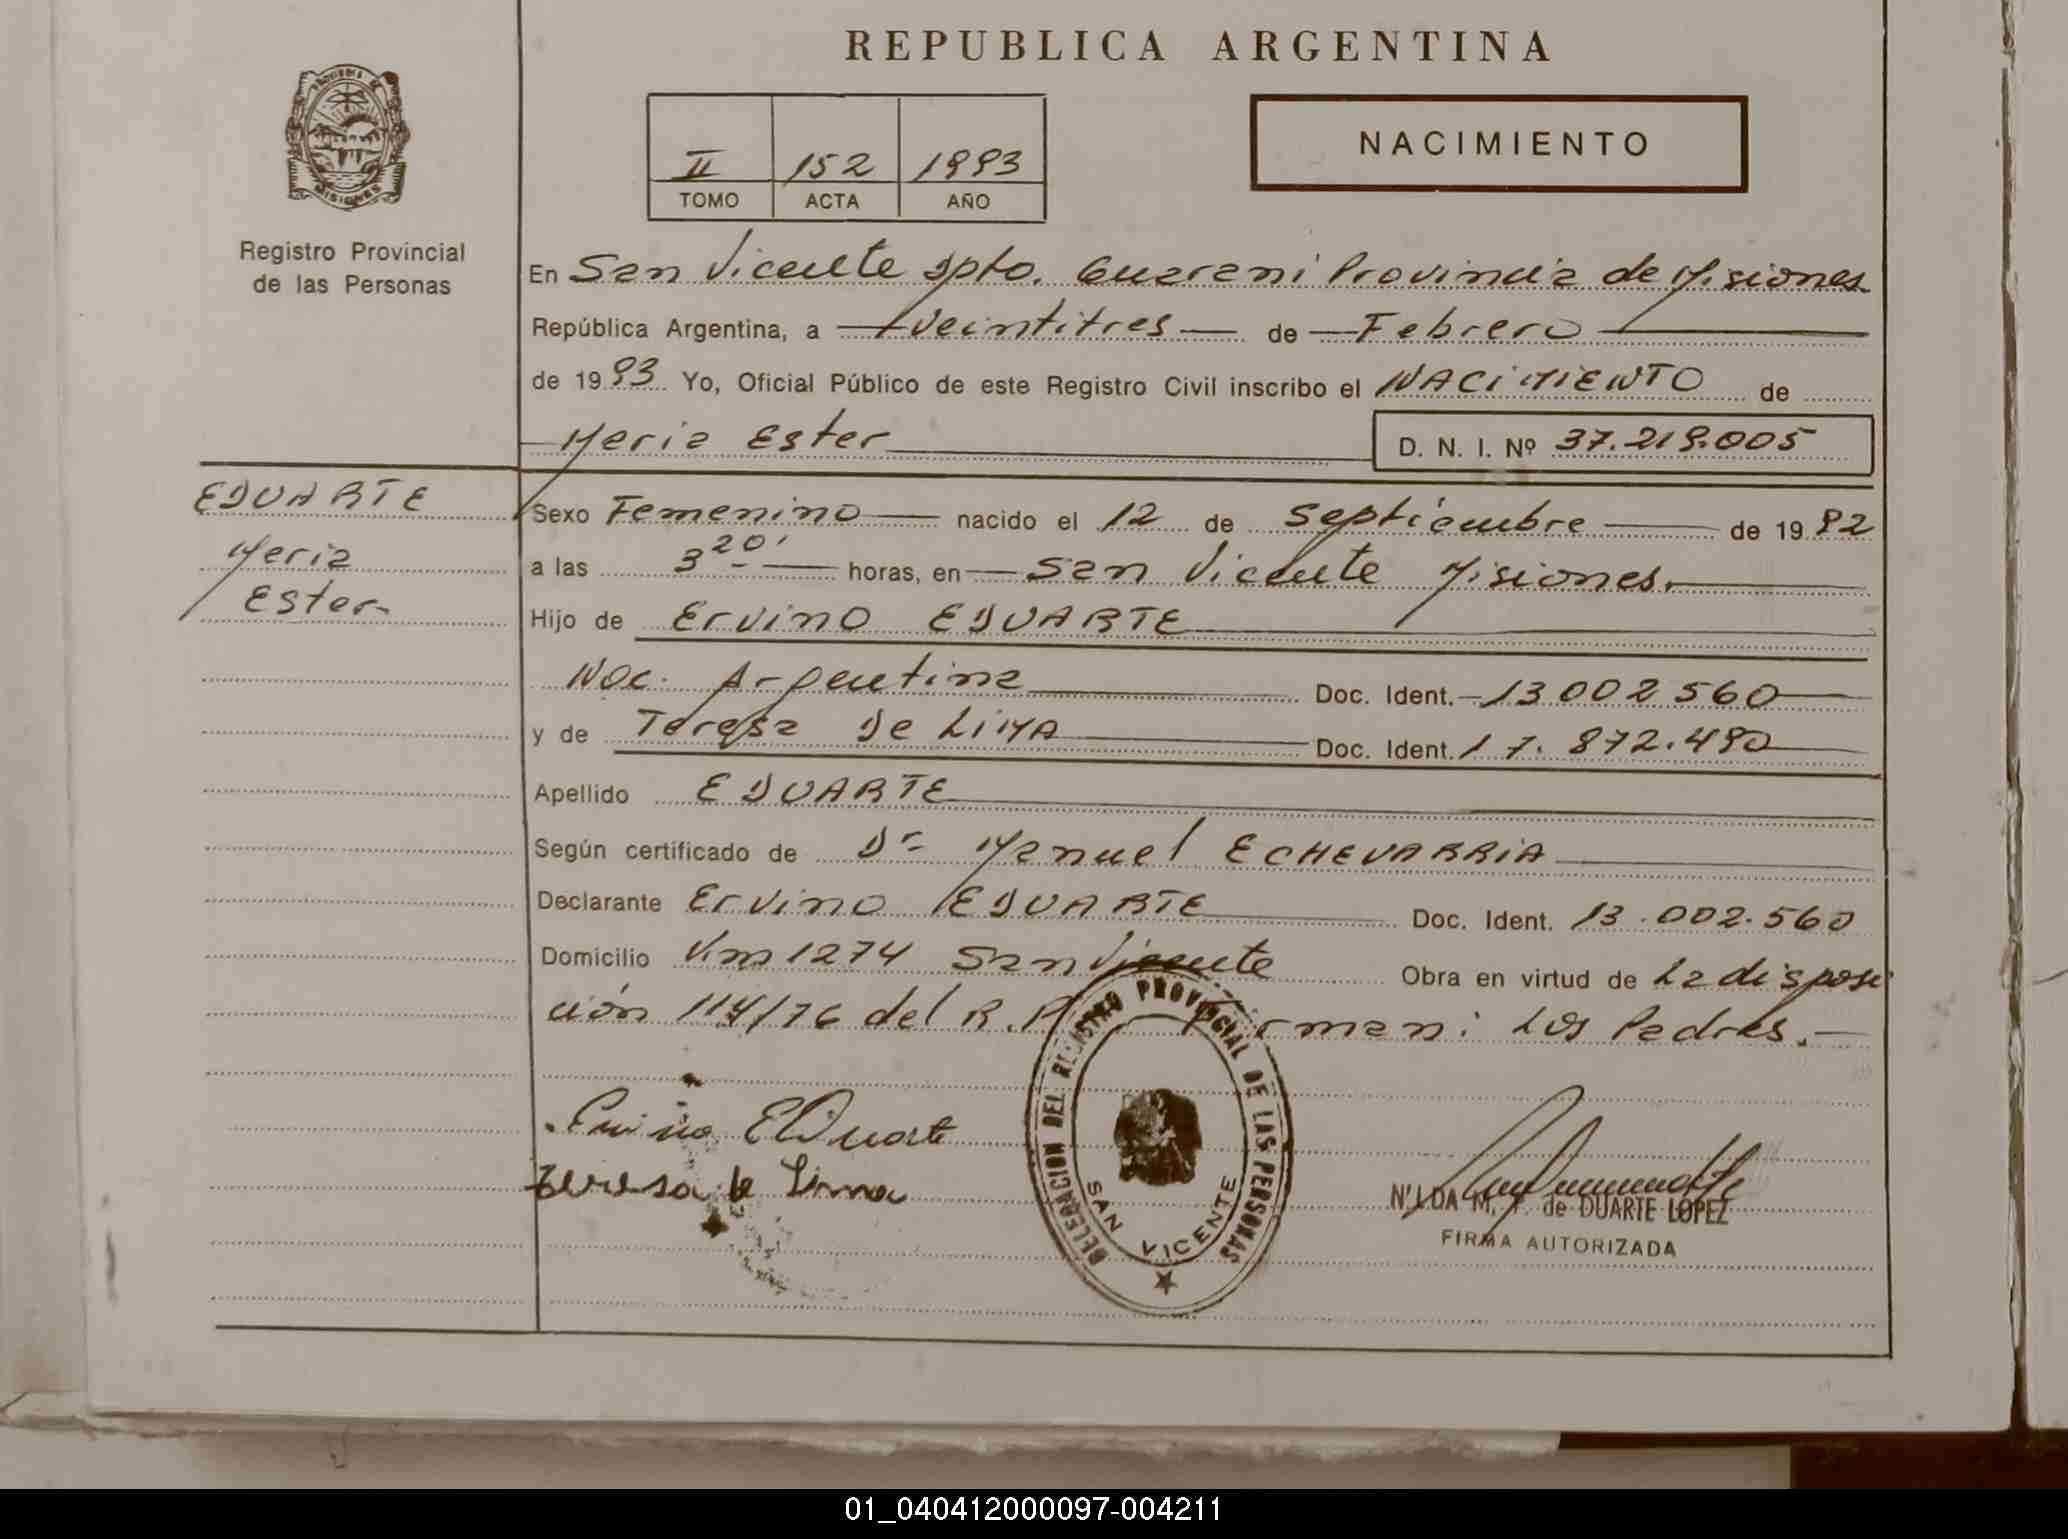 REPUBLICA ARGENTINA
NACIMIENTO
II 152 1993
TOMO ACTA AÑO
MISIONES
Registro Provincial
de las Personas
En San Vicente Dpto. Guarani Provincia de Misiones
República Argentina, a veintitres de Febrero
de 19 93 Yo, Oficial Público de este Registro Civil inscribo el NACIMIENTO de
Maria Ester D. N. I. Nº 37.219.005
EDUARTE
Maria
Ester
Sexo Femenino nacido el 12 de Septiembre de 19 92
a las 3 20' horas, en San Vicente Misiones.
Hijo de Ervino EDUARTE
Nac. Argentina Doc. Ident. 13.002.560
y de Teresa De LIMA Doc. Ident. 17.872.490
Apellido EDUARTE
Según certificado de Dr Manuel ECHEVARRIA
Declarante Ervino EDUARTE Doc. Ident. 13.002.560
Domicilio Km 1274 San Vicente Obra en virtud de La disposi
ción 114/76 del R.P. Firman: Los Padres.
Ervino EDuarte
teresa de Lima
DELEGACION DEL REGISTRO PROVINCIAL DE LAS PERSONAS
SAN VICENTE
de DUARTE LOPEZ
FIRMA AUTORIZADA
01_040412000097-004211